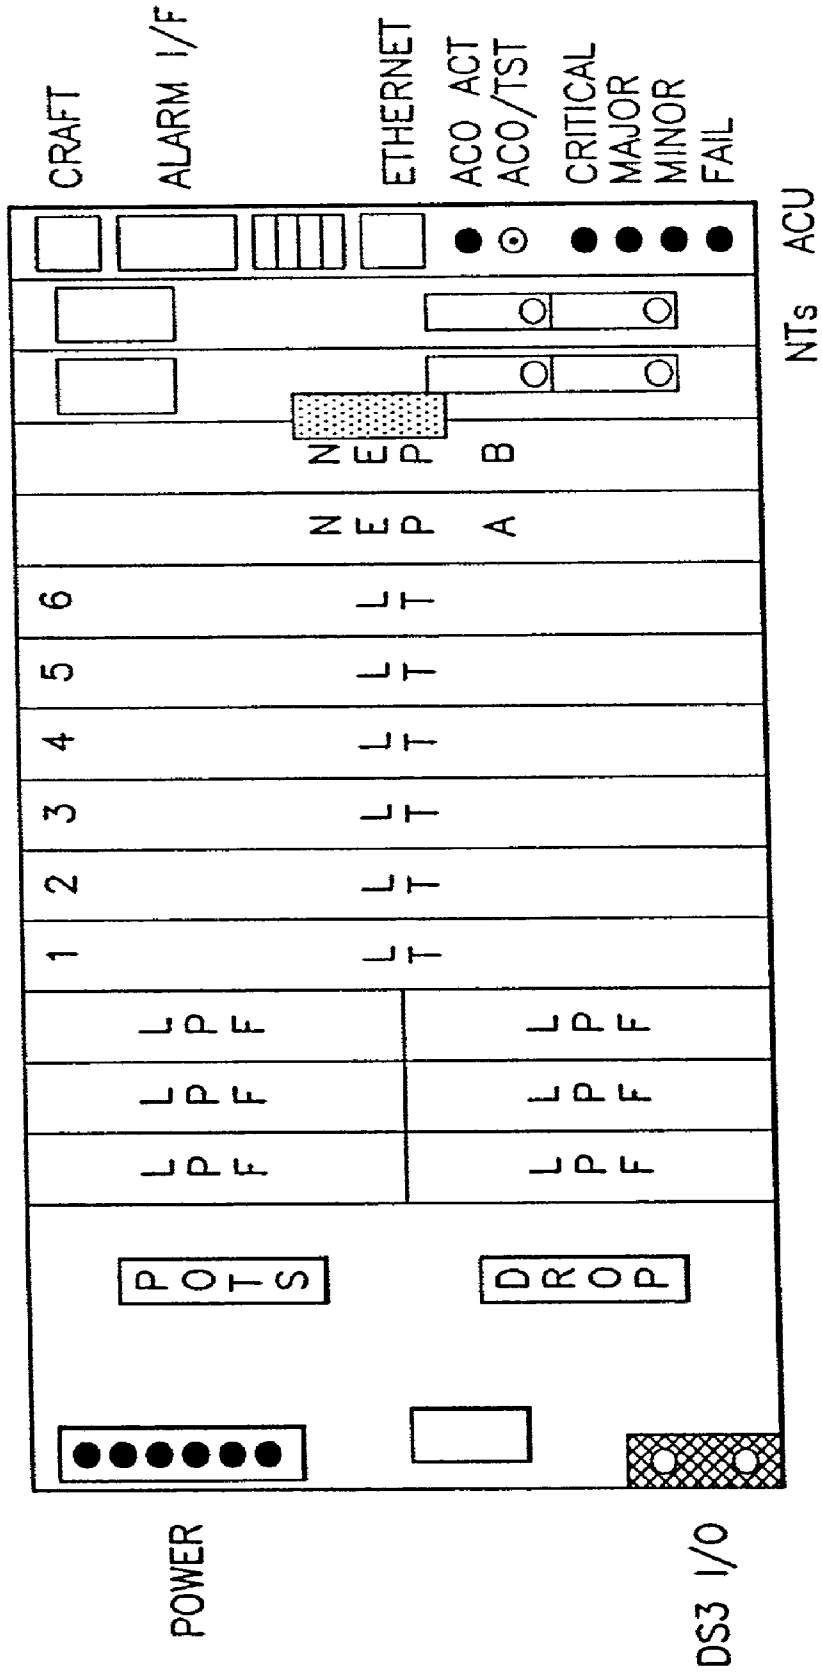 POWER
DS3 I/O
POTS
DROP
LPF
LPF
LPF
LPF
LPF
LPF
1
LT
2
LT
3
LT
4
LT
5
LT
6
LT
NEP A
NEP B
NTs
ACU
CRAFT
ALARM I/F
ETHERNET
ACO ACT
ACO/TST
CRITICAL
MAJOR
MINOR
FAIL